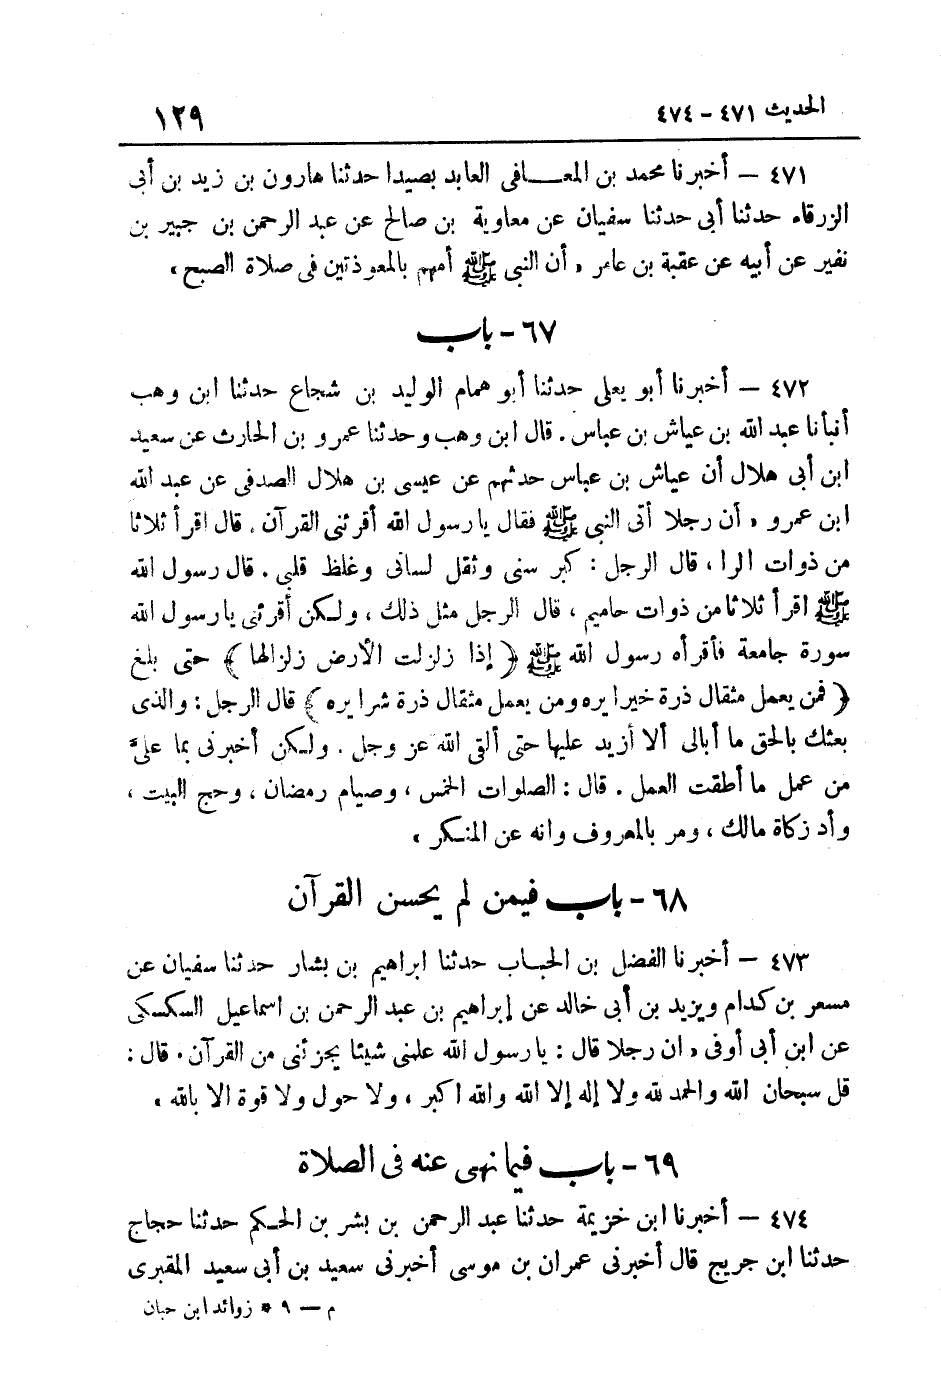 الحديث ٤٧١ – ٤٧٤ ١٢٩
٤٧١ – أخبرنا محمد بن المعافى العابد بصيدا حدثنا هارون بن زيد بن أبى
الزرقاء حدثنا أبى حدثنا سفيان عن معاوية بن صالح عن عبد الرحمن بن جبير بن
نفير عن أبيه عن عقبة بن عامر « أن النبى ﷺ أمهم بالمعوذتين فى صلاة الصبح »
٦٧ - باب
٤٧٢ – أخبرنا أبو يعلى حدثنا أبو همام الوليد بن شجاع حدثنا ابن وهب
أنبأنا عبد الله بن عياش بن عباس . قال ابن وهب وحدثنا عمرو بن الحارث عن سعيد
ابن أبى هلال أن عياش بن عباس حدثهم عن عيسى بن هلال الصدفى عن عبد الله
ابن عمرو « أن رجلا أتى النبى ﷺ فقال يا رسول الله أقرئنى القرآن . قال اقرأ ثلاثا
من ذوات الرا ، قال الرجل : كبر سنى وثقل لسانى وغلظ قلبى . قال رسول الله
ﷺ اقرأ ثلاثا من ذوات حاميم ، قال الرجل مثل ذلك ، ولكن أقرئنى يا رسول الله
سورة جامعة فأقرأه رسول الله ﷺ ﴿ إذا زلزلت الأرض زلزالها ﴾ حتى بلغ
﴿ فمن يعمل مثقال ذرة خيرا يره ومن يعمل مثقال ذرة شرا يره ﴾ قال الرجل : والذى
بعثك بالحق ما أبالى ألا أزيد عليها حتى ألقى الله عز وجل . ولكن أخبرنى بما علىَّ
من عمل ما أطقت العمل . قال : الصلوات الخمس ، وصيام رمضان ، وحج البيت ،
وأد زكاة مالك ، ومر بالمعروف وانه عن المنكر »
٦٨ - باب فيمن لم يحسن القرآن
٤٧٣ – أخبرنا الفضل بن الحباب حدثنا ابراهيم بن بشار حدثنا سفيان عن
مسعر بن كدام ويزيد بن أبى خالد عن إبراهيم بن عبد الرحمن بن اسماعيل السكسكى
عن ابن أبى أوفى « ان رجلا قال : يا رسول الله علمنى شيئا يجزئنى من القرآن . قال :
قل سبحان الله والحمد لله ولا إله إلا الله والله اكبر ، ولا حول ولا قوة الا بالله »
٦٩ - باب فيما نهى عنه فى الصلاة
٤٧٤ – أخبرنا ابن خزيمة حدثنا عبد الرحمن بن بشر بن الحكم حدثنا حجاج
حدثنا ابن جريج قال أخبرنى عمران بن موسى أخبرنى سعيد بن أبى سعيد المقبرى
م – ٩ * زوائد ابن حبان